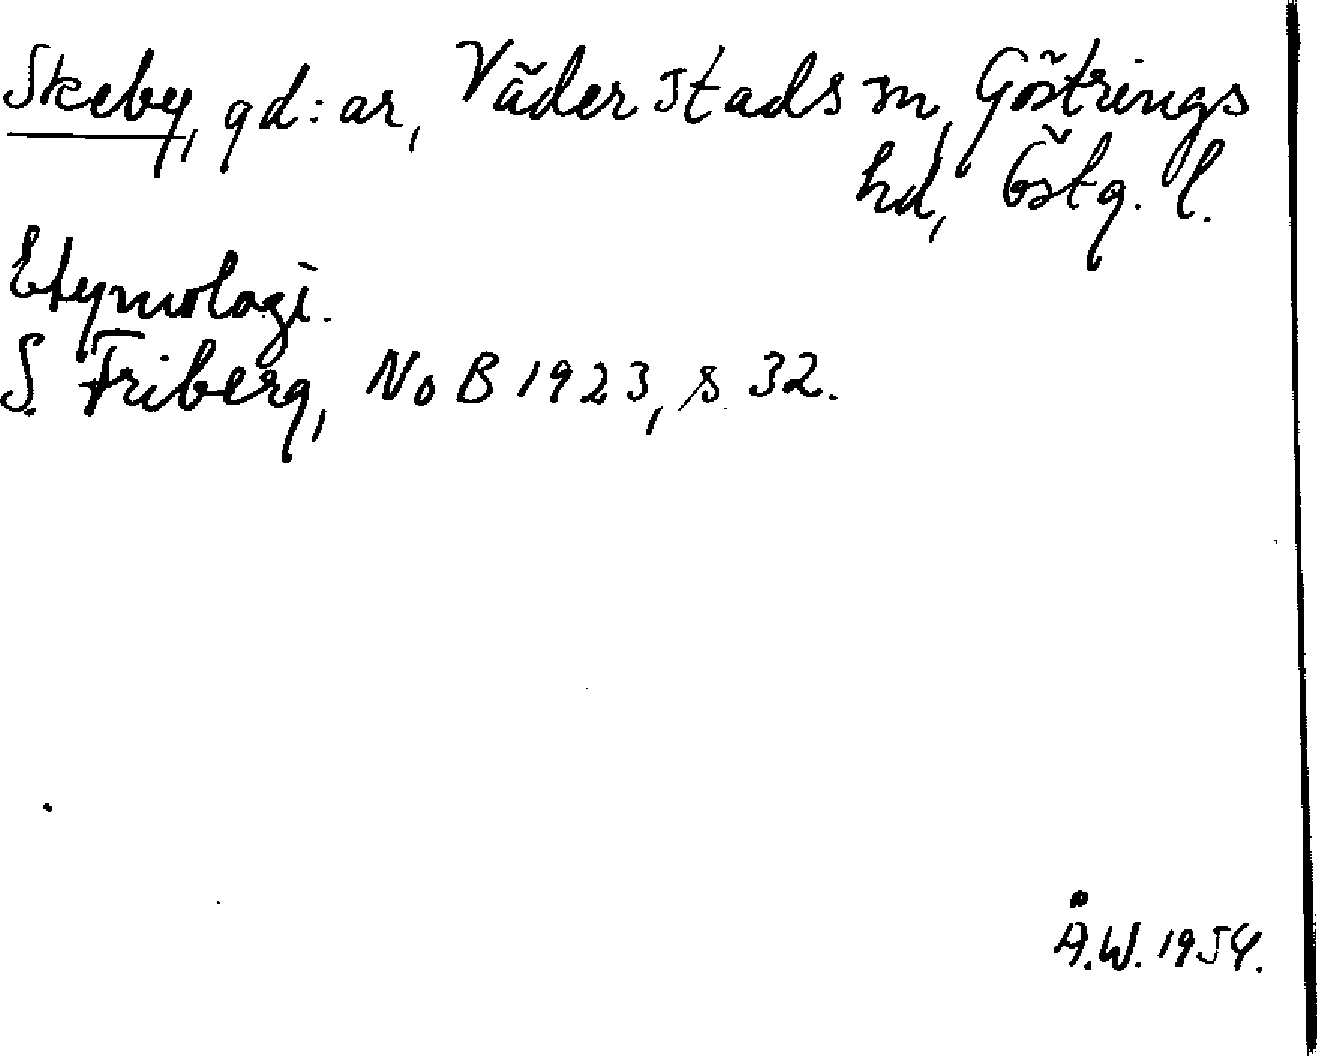 Skeby, gd:ar, Väderstads sn, Göstrings
hd, Östg. l.
Etymologi.
S. Friberg, NoB 1923, s 32.
Å.W. 1954.